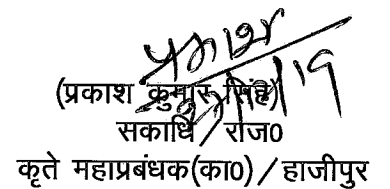 प्रकाश
(प्रकाश कुमार सिंह)
सकाधि / राज0
कृते महाप्रबंधक(का0) / हाजीपुर